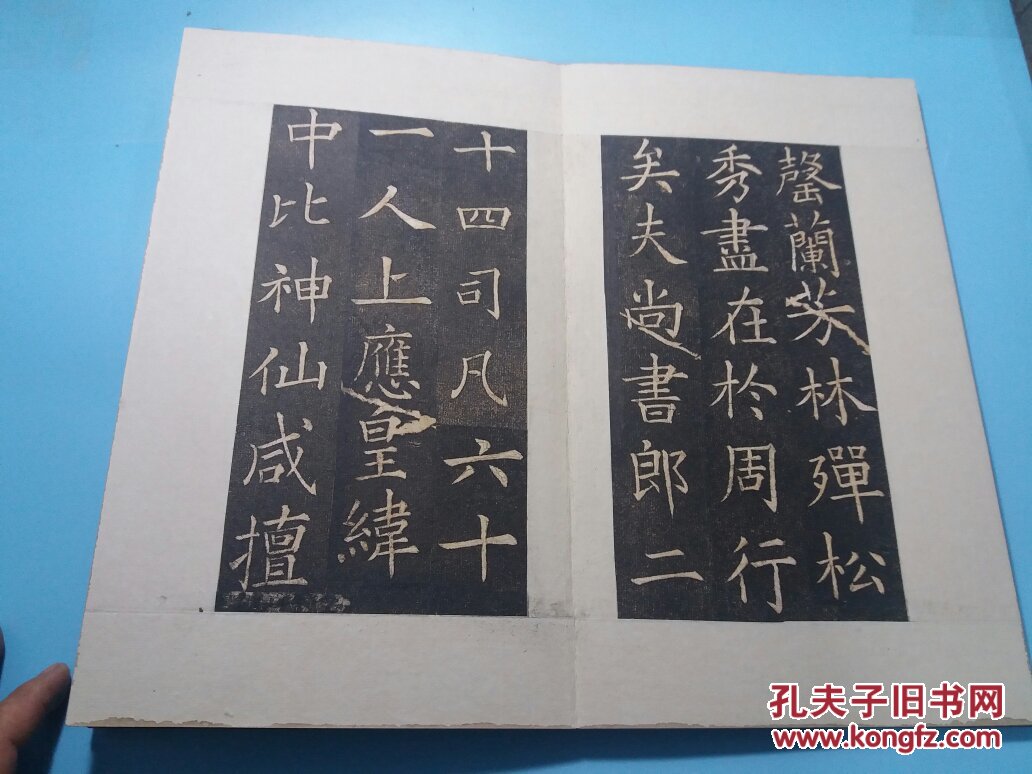 罄蘭芬林殫松
秀盡在於周行
矣夫尚書郎二
十四司凡六十
一人上應星緯
中比神仙咸擅
孔夫子旧书网
www.kongfz.com